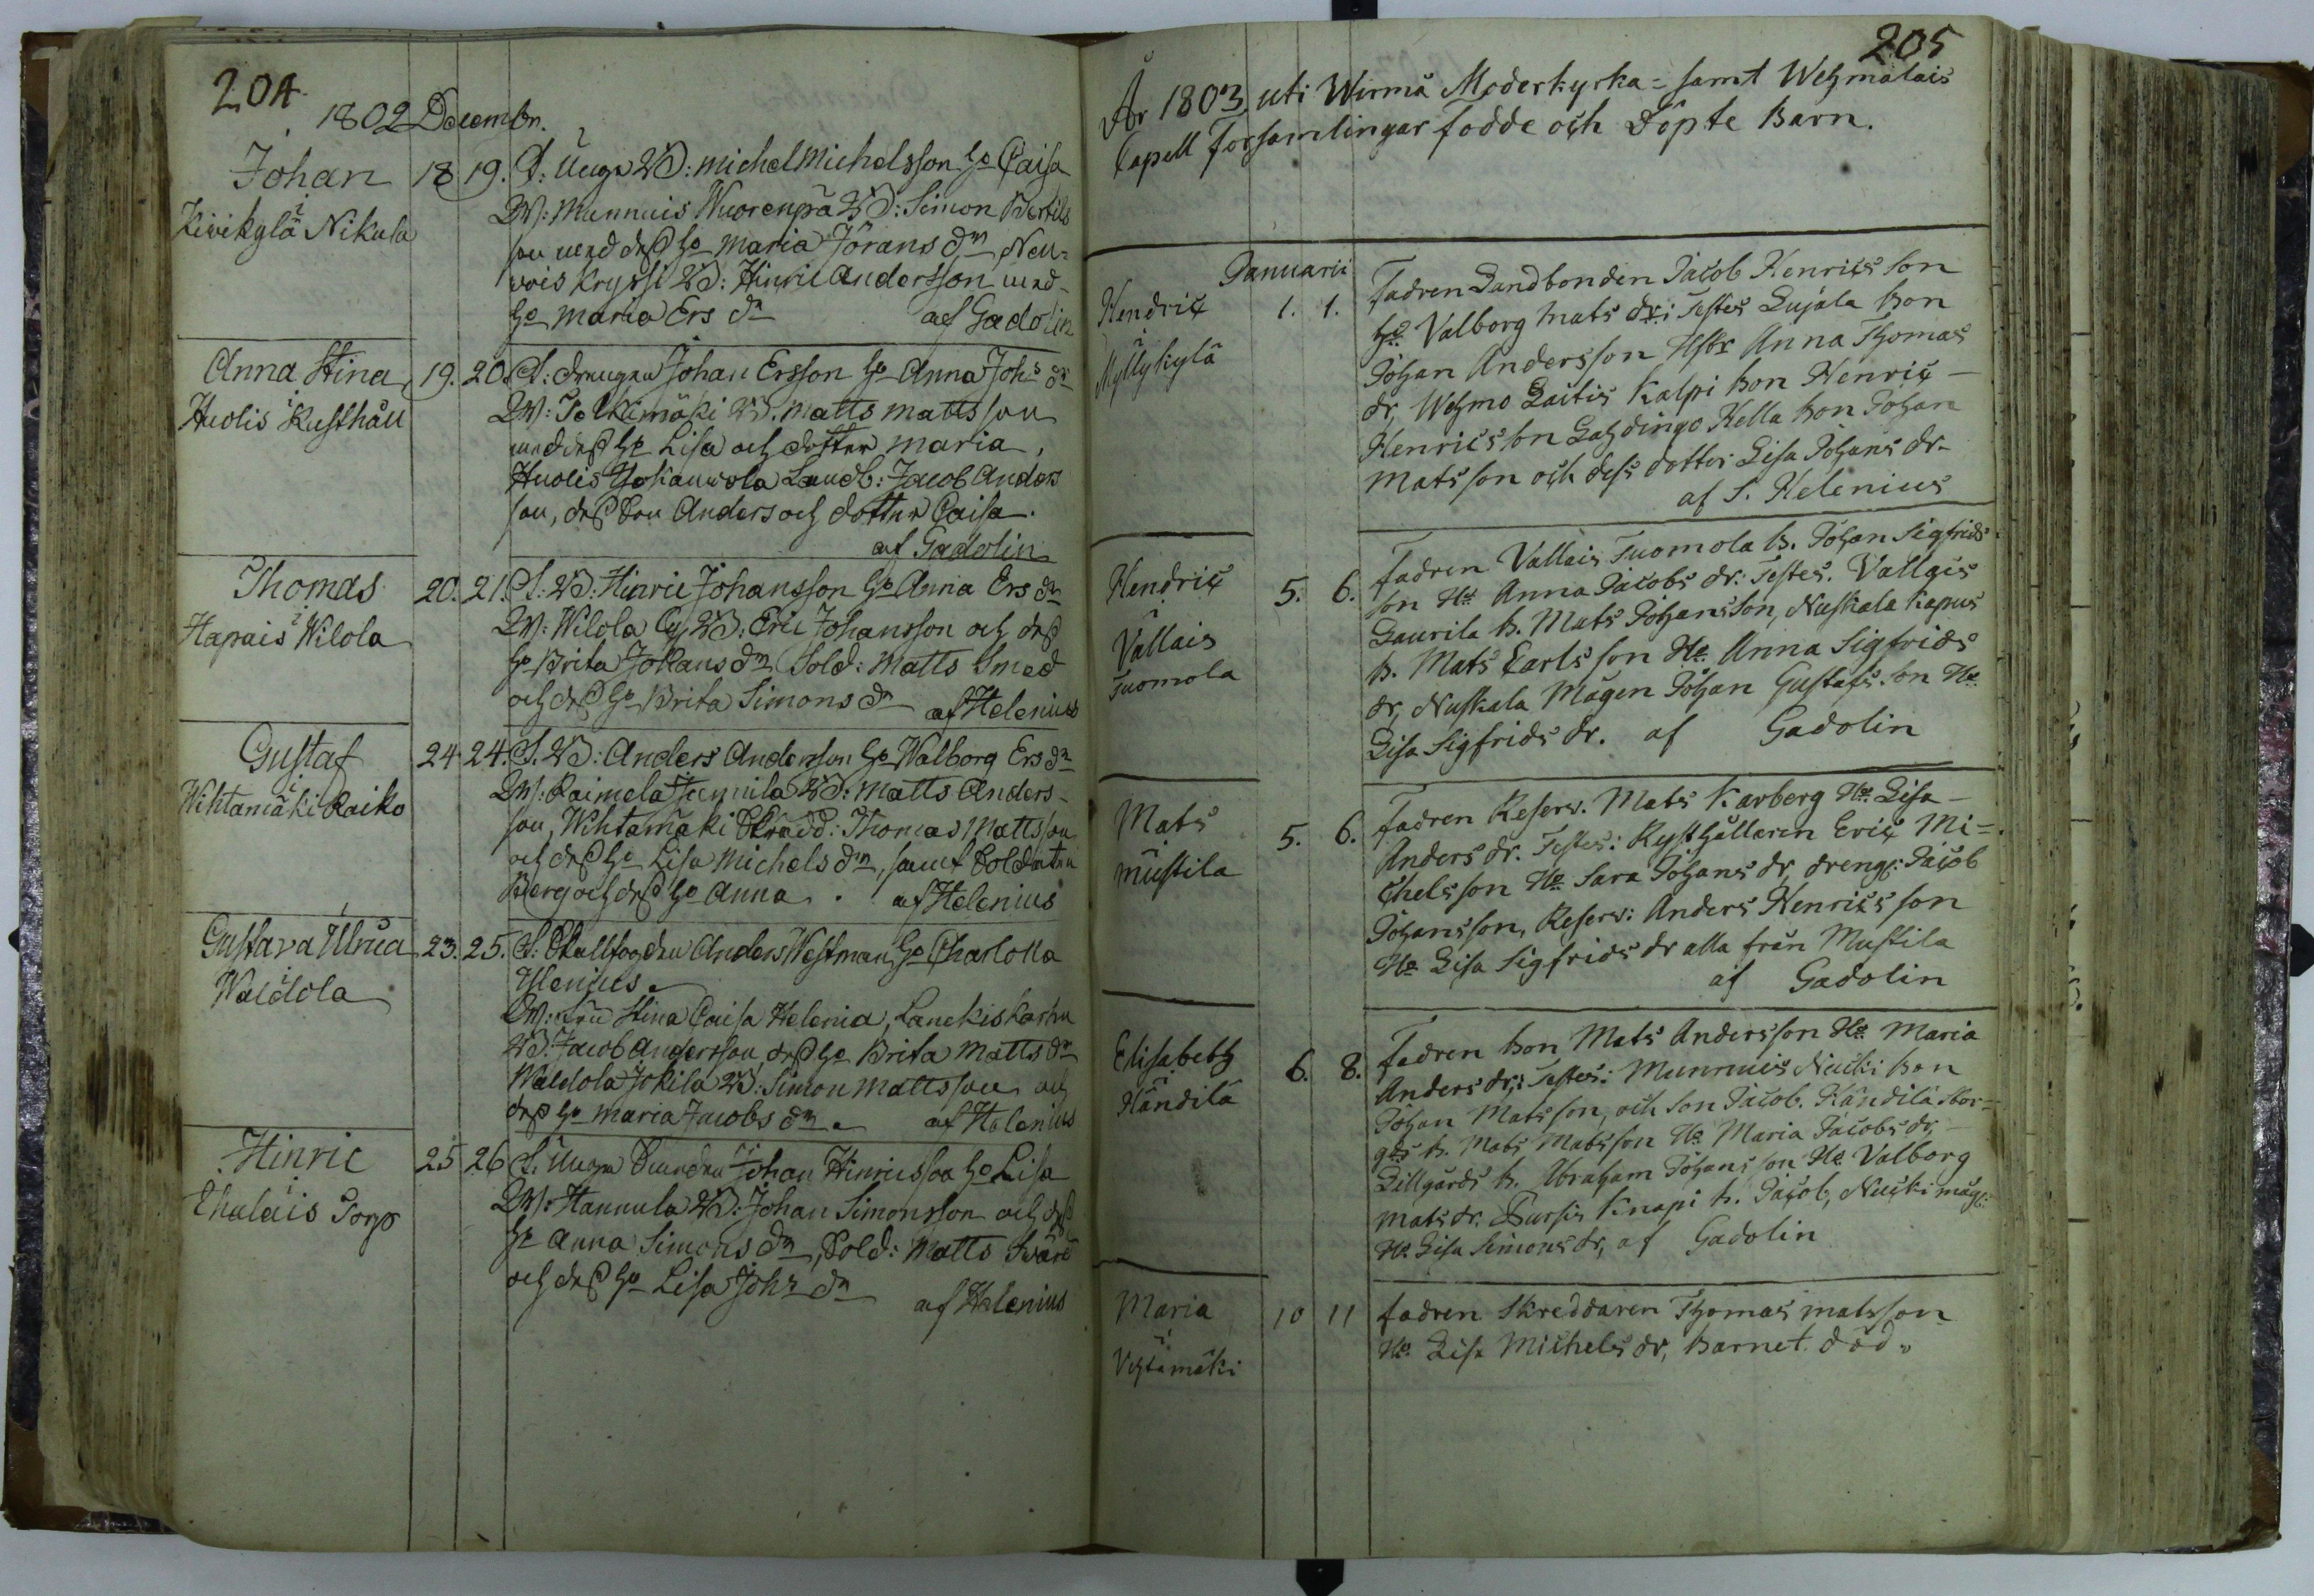 204.
1802 Decembr.
Johan
i
Kivikylä Nikula
18 19. F: Unge B: Michel Michelsson H: Caisa
W: Munnuis Wuorenpä B: Simon Bertils
son med dess H: Maria Jörans dr, Neu-
vois Kryssi B: Hinric Andersson med
H: Maria Ers dr af Gadolin
Anna Stina
i
Huolis Kusthåll
19. 20. F: drengen Johan Ersson H: Anna Johs dr
W: Tolkimäki B. Matts Mattsson
med dess H: Lisa och dotter Maria,
Huolis Yokauwola Landb: Jacob Anders
son, dess Son Anders och dotter Caisa.
af Gadolin
Thomas
i
Hapais Wilola
20. 21. F: B: Hinric Johansson H: Anna Ers dr
W: Wilola B: Eric Johansson och dess
H: Brita Johans dr, Sold: Matts Smed
och dess H: Brita Simons dr af Helenius
Gustaf
i
Wihtamäki Raiko
24 24. F. B: Anders Andersson H: Walborg Ers dr
W: Raimela B: Matts Anders-
son, Wihtamäki Skrädd: Thomas Mattsson
och dess H: Lisa Michels dr, samt Soldaten
Berg och dess H: Anna. af Helenius
Gustava Ulrica
i
Waldola
23. 25. F: Stallfogden Anders Westman, H: Charlotta
Ilenius.
W: Fru Stina Caisa Helenia, Lanckis Karhu
B. Jacob Andersson, dess H: Brita Matts dr
Waldola Jokila B: Simon Mattsson och
dess H: Maria Jacobs dr. af Helenius
Hinric
i
Thalais Torp
25 26 F. Unge Johan Hinricsson H: Lisa
W: Hannula B: Johan Simonsson och dess
H: Anna Simons dr, Sold: Matts Swärd
och dess H: Lisa Johs dr af Helenius
205
År 1803, uti Wirmå Moderkyrka- samt Wehmalais
Capell Forsamlingar fodde och Döpte Barn.
Januarii
Hendric
i
Myllykylä
1. 1. Fadren Landbonden Jacob Henrics son
H: Valborg Mats dr: Testes Lujala bon
Johan Andersson Hstr Anna Thomas
dr, Wehmo Laitis Kalpi bon Henric
Henrics son Lahdingo Kella bon Johan
Matsson och dess dotter Lisa Johans dr
af S. Helenius
Hendric
i
Vallais
Tuomola
5. 6. Fadren Vallais Tuomola b. Johan Sigfrids
son H: Anna Jacobs dr: Testes. Vallais
Laurila b. Mats Johansson, Nuskala Kapus
b. Mats Carlsson H: Anna Sigfrids
dr, Nuskala Mågen Johan Gustafs son H:
Lisa Sigfrids dr. af Gadolin
Mats
i
Mustila
5. 6. Fadren Reserv. Mats Karberg H: Lisa
Anders dr. Testes: Rysthållaren Eric Mi=
chelsson H: Sara Johans dr, dreng: Jacob
Johansson, Reserv: Anders Henrics son
H: Lisa Sigfrids dr alla från Mustila
af Gadolin
Elisabeth
i
Händilä
6. 8. Fadren bon Mats Andersson H: Maria
Anders dr: Testes: Munnuis Nucki bon
Johan Matsson, och son Jacob. Händilä Stor=
gds b. Mats Matsson H: Maria Jacobs dr,
Lillgårds b. Abraham Johansson H: Valborg
Mats dr. Pursis Knapi b. Jacob, Nucki måg:
H: Lisa Simons dr, af Gadolin
Maria
i
Vehtamäki
10 11 fadren Skreddaren Thomas Matsson
H: Lisa Michels dr, Barnet död.